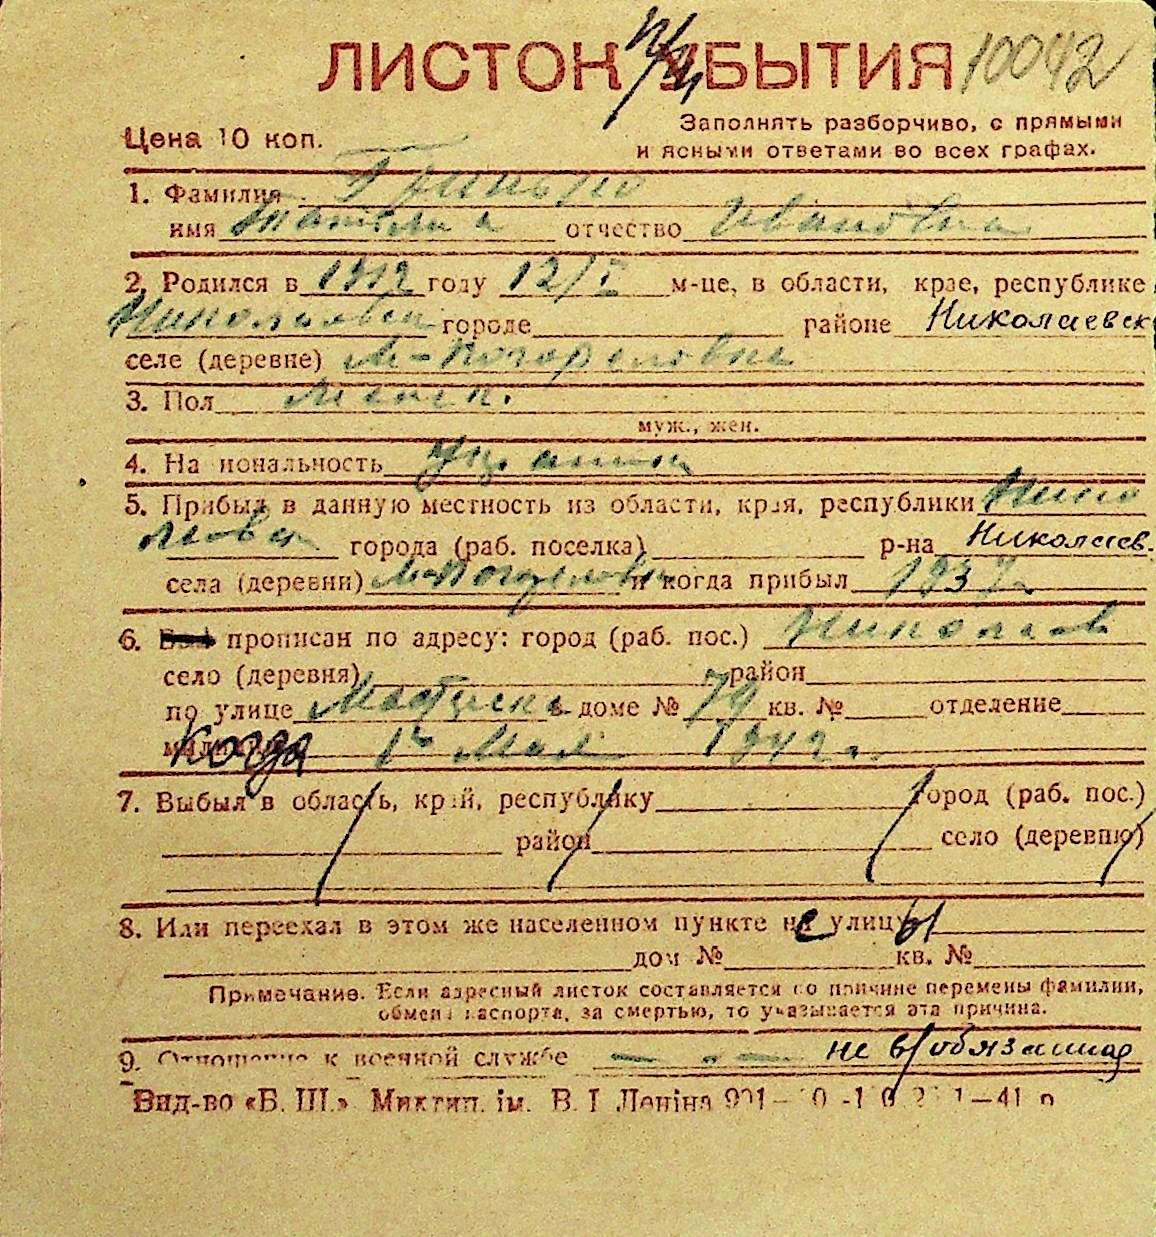 ЛИСТОК УБЫТИЯ 10042
Цена 10 коп.
Заполнять разборчиво, с прямыми
и ясными ответами во всех графах.
1. Фамилия Гринько
имя Татьяна отчество Ивановна
2. Родился в 1912 году 12/I м-це, в области, крае, республике
Николаевск городе районе Николаевск
селе (деревне) М-Погореловка
3. Пол женск.
муж., жен.
4. Национальность Украинка
5. Прибыл в данную местность из области, края, республики Нико
лаевск города (раб. поселка) р-на Николаев.
села (деревни) М-Погореловка и когда прибыл 1937
6. прописан по адресу: город (раб. пос.) Николаев
село (деревня) район
по улице в доме № 79 кв. № отделение
Когда 1го Мая 1942 г.
7. Выбыл в область, край, республику город (раб. пос.)
район село (деревню)
8. Или переехал в этом же населенном пункте не улицы
дом № кв. №
Примечание. Если адресный листок составляется по причине перемены фамилии,
обмена паспорта, за смертью, то указывается эта причина.
9. Отношение к военной службе не в/обязанная
Вид-во «Б. Ш.» Миктип. ім. В. І. Леніна